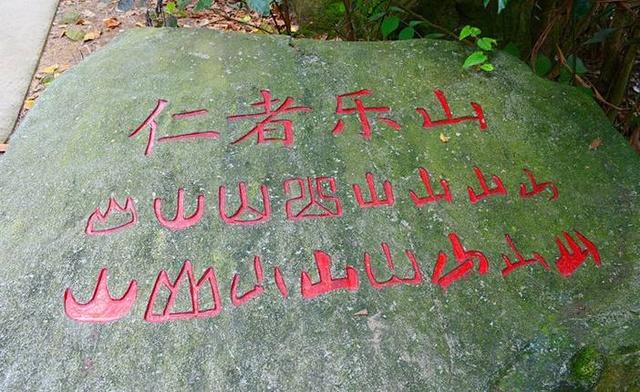 仁者乐山
山山山山山山山山
山山山山山山山山